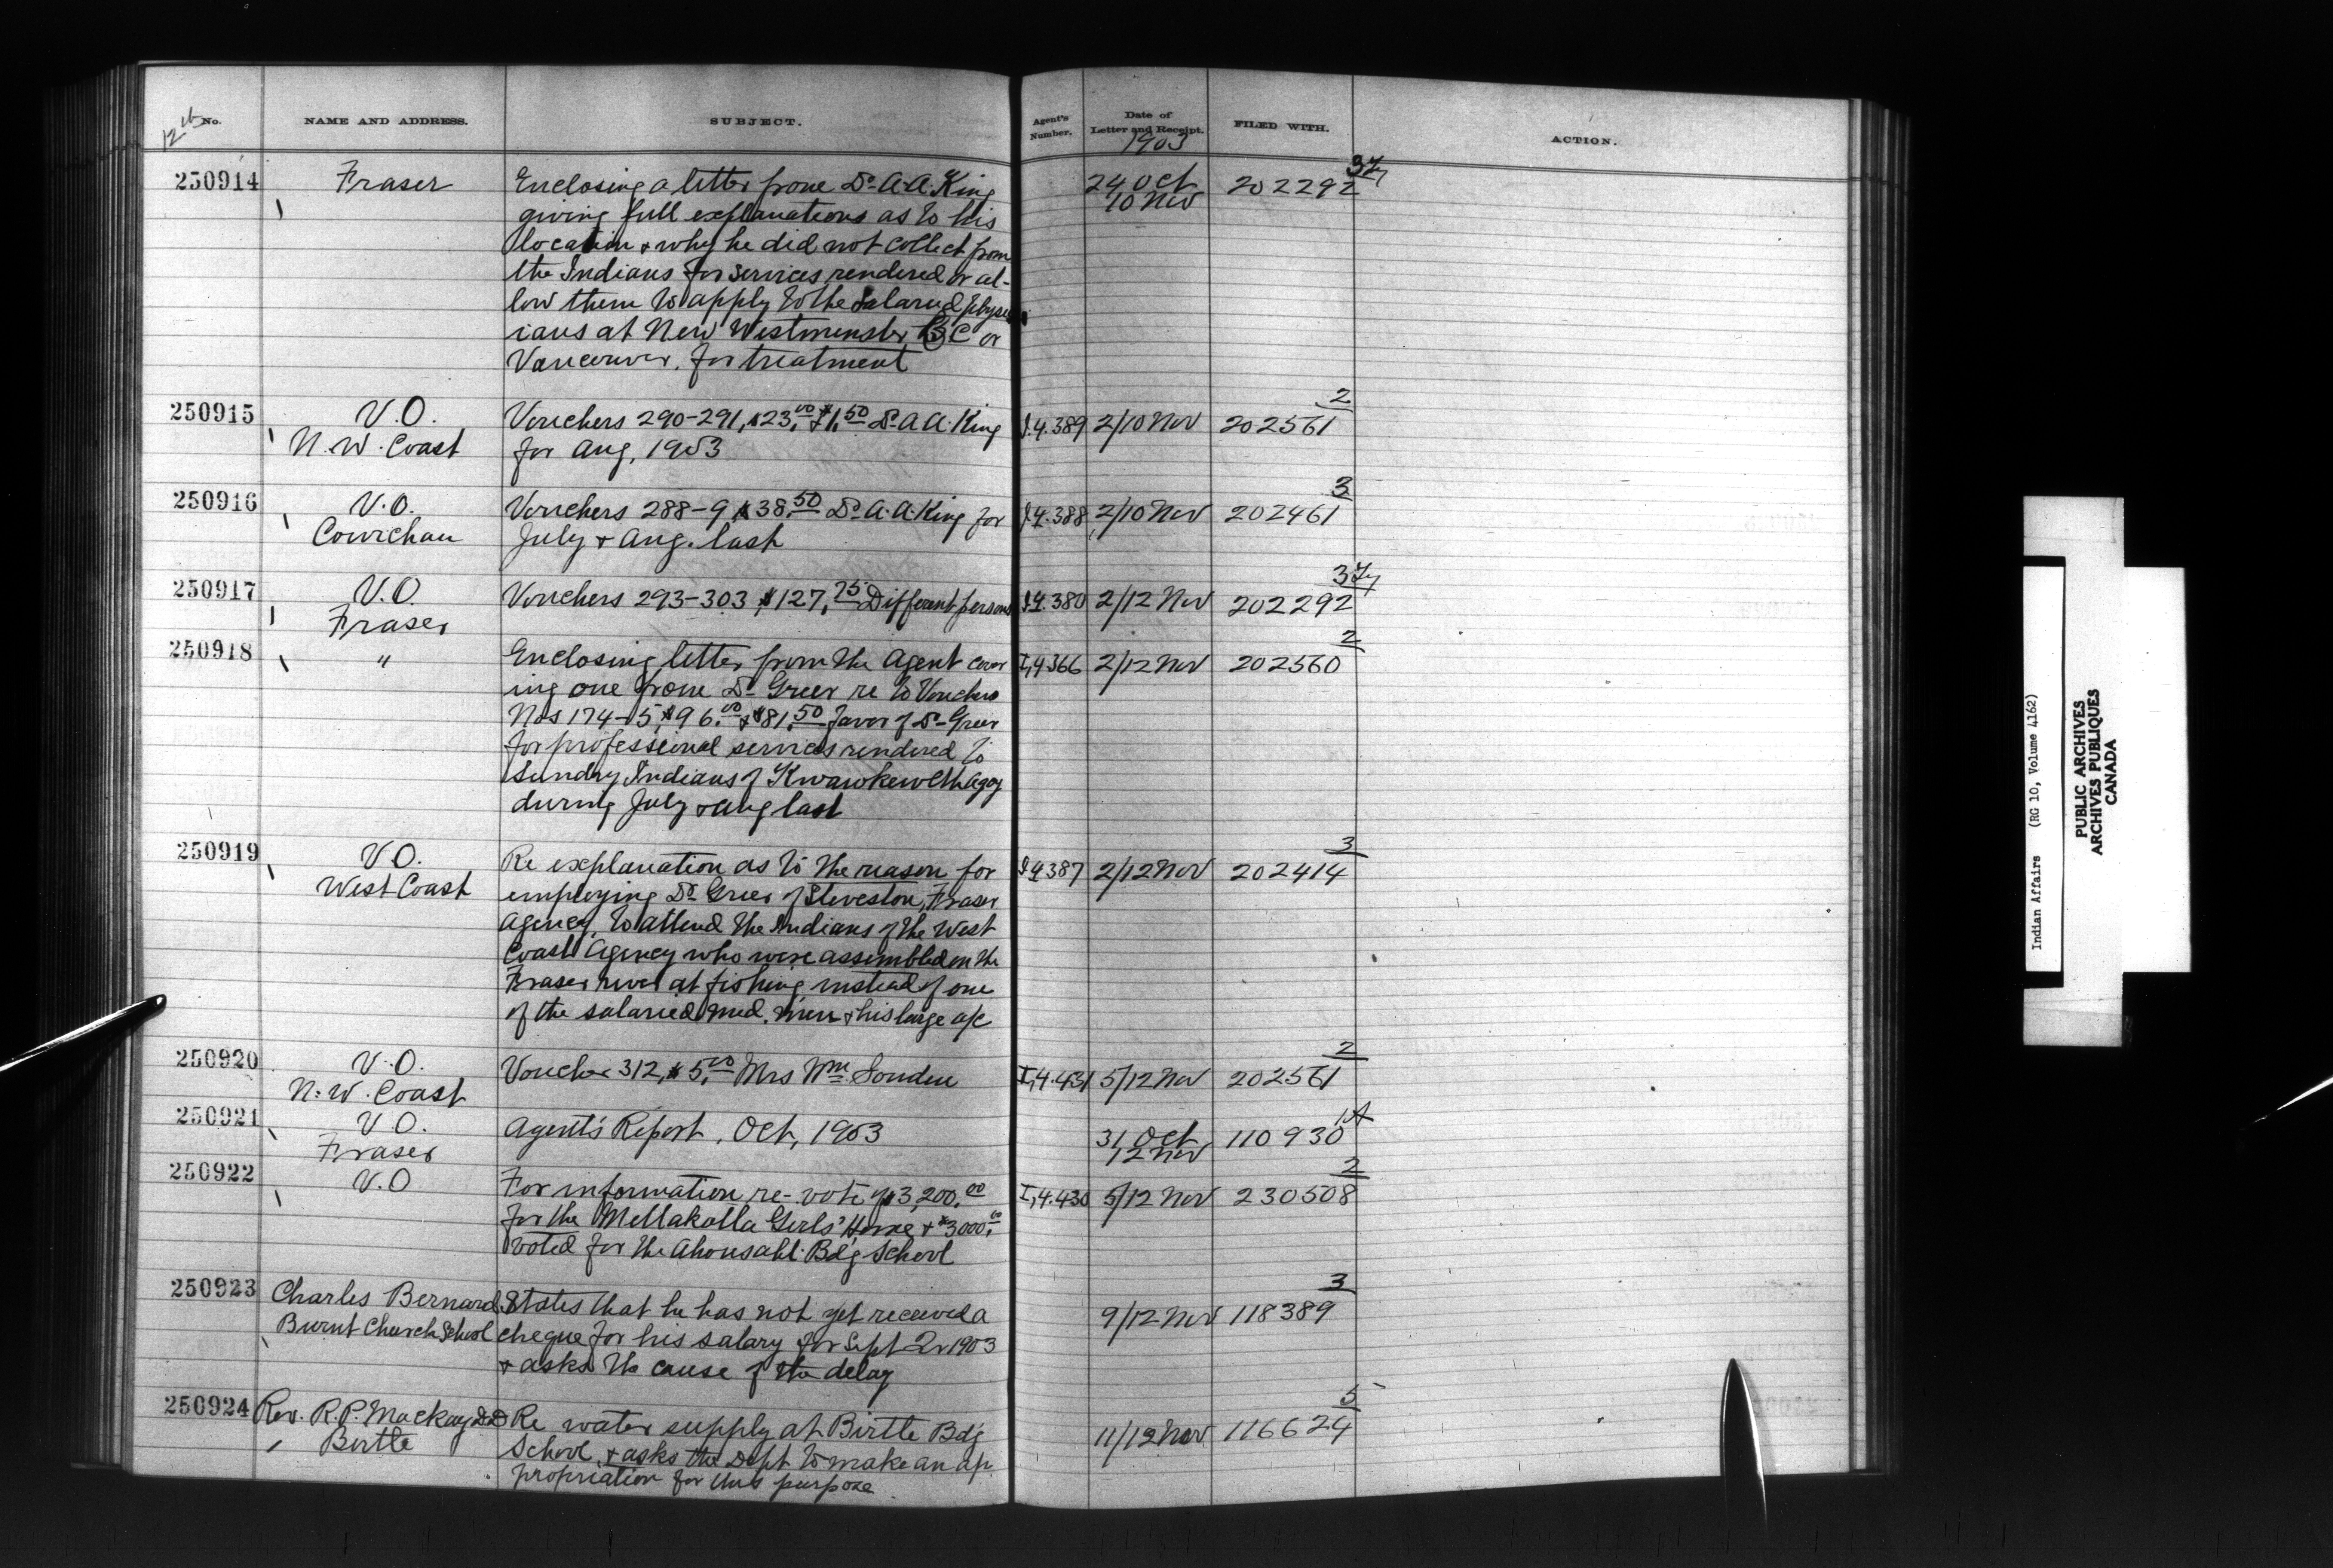 12th No. NAME AND ADDRESS. SUBJECT. Agent's Number. Date of Letter and Receipt. 1903 FILED WITH. ACTION.
250914 Fraser Enclosing a letter from Dr A. A. King 24 Oct 202292 3
giving full explanations as to his 10 Nov
location & why he did not collect from
the Indians for services rendered or al-
low them to apply to the salaried physic
ians at New Westminster B C or
Vancouver, for treatment
250915 V. O. Vouchers 290-291, $23.00 $1.50 Dr A A. King I.4.389 2/10 Nov 202561 2
N. W. Coast for Aug, 1903
250916 V. O. Vouchers 288-9 $38.50 Dr A. A. King for I.4.388 2/10 Nov 202461 3
Cowichan July & Aug. last
250917 V. O. Vouchers 293-303 $127.75 Different persons I.4.380 2/12 Nov 202292 3
Fraser
250918 " Enclosing letter from the Agent cover I,4.366 2/12 Nov 202560 2
ing one from Dr Greer re to Vouchers
Nos 174-5, $96.00 & $81.50 favor of Dr Greer
for professional services rendered to
Sundry Indians of Kwawkewlth Agcy
during July & Aug last
250919 V O. Re explanation as to the reason for I 4 387 2/12 Nov 202414 3
West Coast employing Dr Greer of Steveston, Fraser
Agency, to attend the Indians of the West
Coast Agency who were assembled on the
Fraser river at fishing instead of one
of the salaried med. men & his large a/c
250920 V. O. Voucher 312, $5.00 Mrs Wm Louden I,4.431 5/12 Nov 202561 2
N. W. Coast
250921 V O. Agent's Report, Oct, 1903 31 Oct 110930 1A
Fraser 12 Nov
250922 V. O For information re-vote of $3,200.00 I,4.430 5/12 Nov 230508 2
for the Metlakatla Girls' Home & $3000.00
voted for the Ahousaht Bd'g School
250923 Charles Bernard States that he has not yet received a 9/12 Nov 118389 3
Burnt Church School cheque for his salary for Sept Qr 1903
& asks the cause of the delay
250924 Rev. R. P. Mackay D.D Re water supply at Birtle Bd'g 11/12 Nov 116624 5
Birtle School, & asks the Dept to make an ap
propriation for this purpose
Indian Affairs (RG 10, Volume 4162)
PUBLIC ARCHIVES
ARCHIVES PUBLIQUES
CANADA